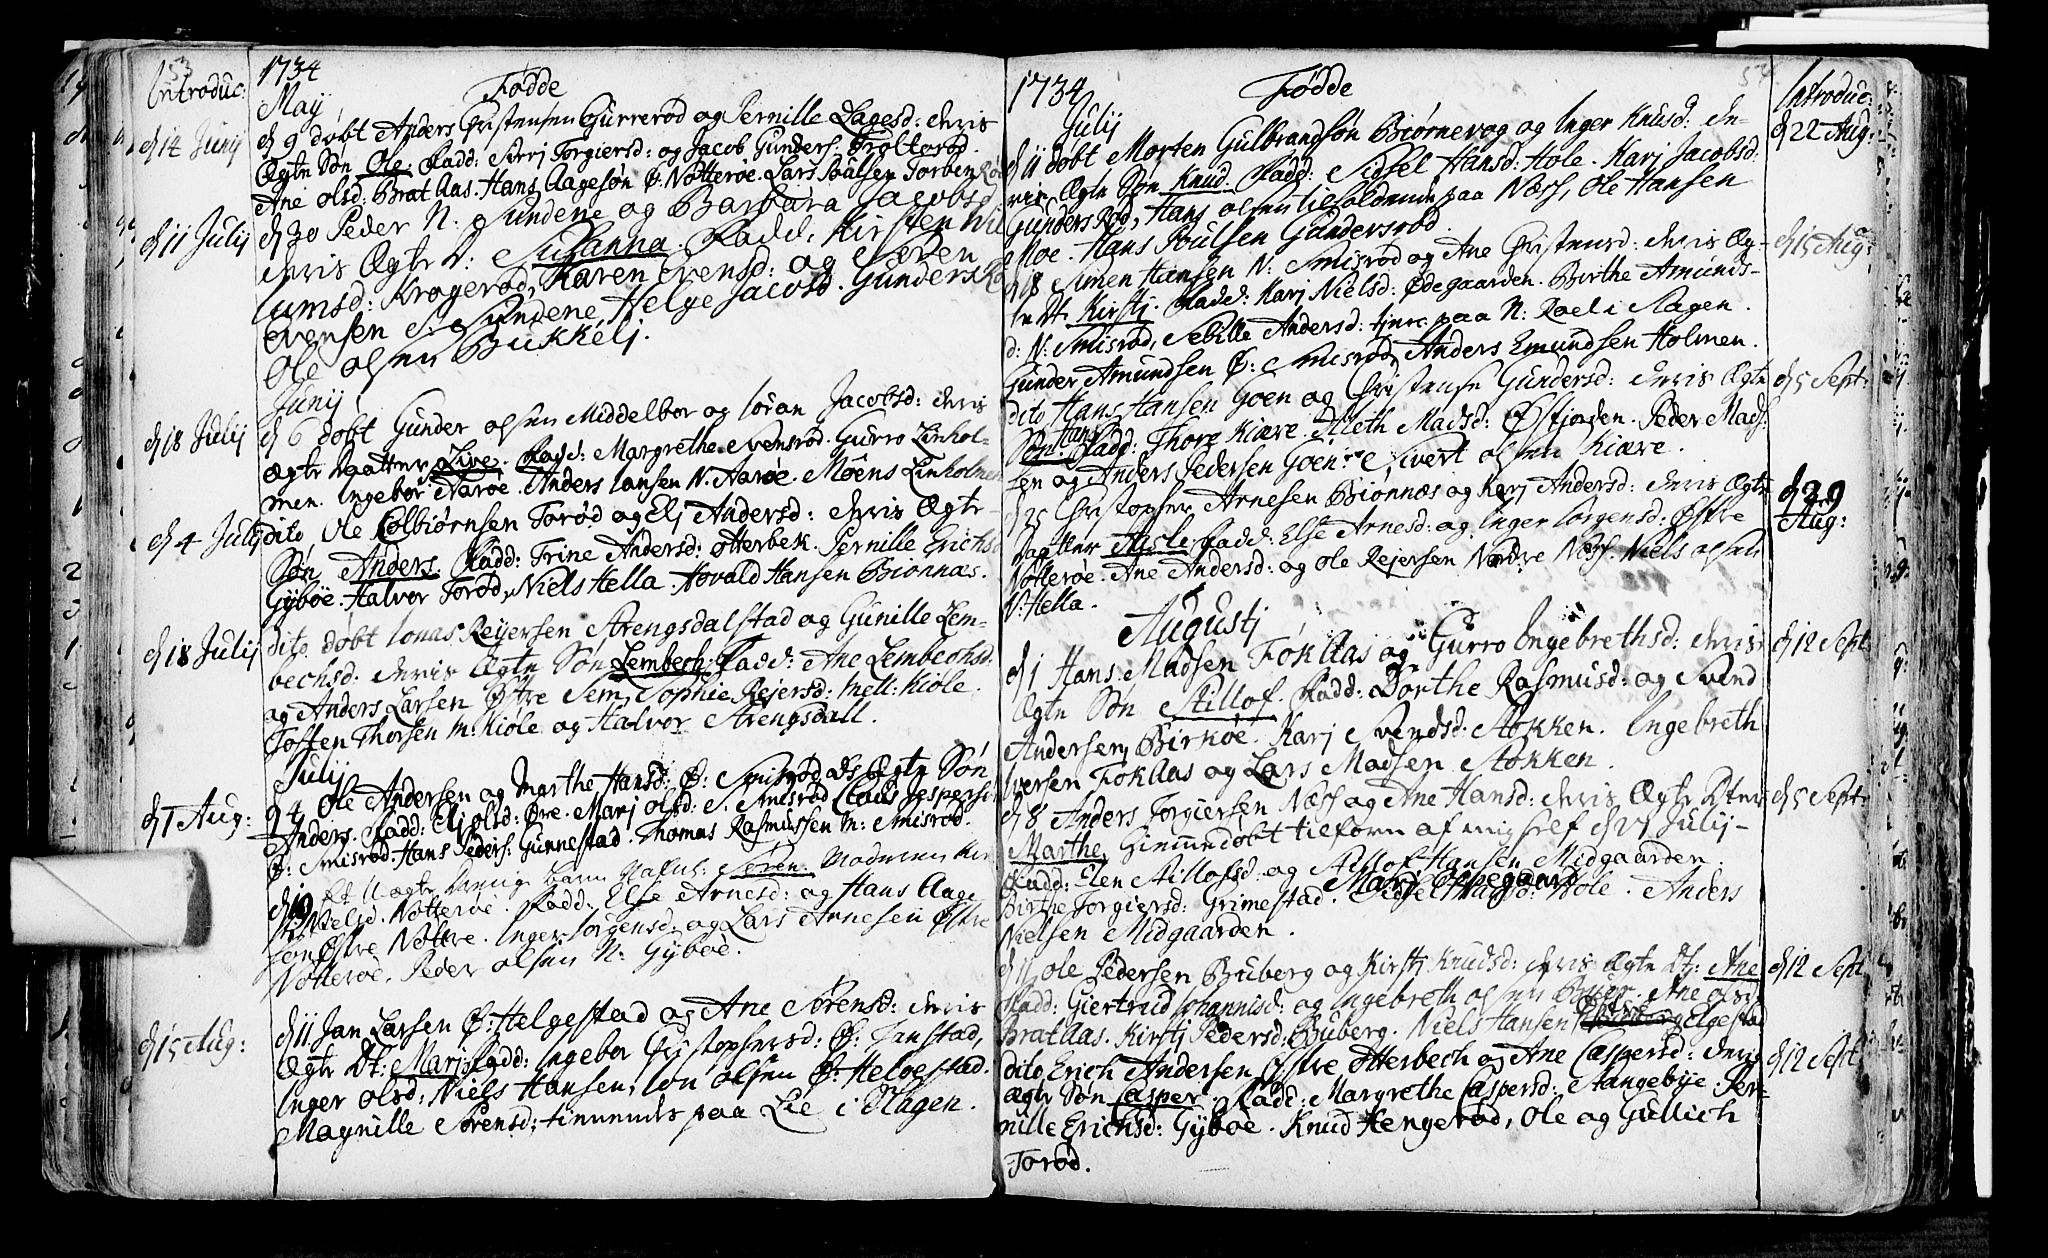 53
Introduc:
1734
Fødde
May
d 14 Junij
d 9 døbt Anders Christensen Gurrerød og Pernille Lagesd: deris
Ægte Søn Ole. Fadd: Sirrj Torgiersd: og Jacob Gunders: Troltesrød.
Ane olsd: Brat Aas. Hans Aagesøn Ø: Nøtterøe. Lars Poulsen Torben
d 11 Julij
d 30 Peder N: Sundene og Barbara Jacobsd:
deris Ægte D: Susanna. Fadd: Kirsten
lumsd: Krogerød, Karen Evensd: og Søren
Evensen S: Sundene, Helge Jacobsd. Gunders
Ole olsen Bukkelj.
Junij
d 18 Julij
d 6 døbt Gunder olsen Middelbor og Joran Jacobsd: deris
Ægte Daatter Live. Fadd: Margrethe Svensrød. Gurro Linhol-
men. Ingebor Narøe. Anders Jansen N. Narøe. Møens Linholmen
d 4 Julij
dito Ole Colbiørnsen Torød og Elj Andersd: deris Ægte
Søn Anders. Fadd: Trine Andersd: otterbek. Pernille Erichs
Gybøe. Halvor Torød, Niels Hella. Hovald Hansen Biønnæs.
d 18 Julij
dito døbt Jonas Reijersen Strengsdalstad og Gunille Lem-
bechsd: deris Ægte Søn Lembech. Fadd: Ane Lembechsd:
og Anders Larsen Østre Sem, Sophie Rejersd: mell: Kiøle.
Tosten Thorsen m: Kiøle og Halvor Strengsdall.
Julij
d 1 Aug:
d 4 Ole Andersen og Marthe Hansd: Ø: Smisrød ds Ægte Søn
Anders. Fadd: Elj olsd: Øre. Marj olsd: S. Smisrød Claus Jespersen
Ø: Smisrød. Hans Peders: Gunnestad. Thomas Rasmussen m: Smisrød.
d 10 Et Uægte Barn Nafnl: Søren. Moderen
Nielsd. Nøtterøe. Fadd: Else Arnesd: og Hans Aage
søn Østre Nøttre. Inger Jørgensd: og Lars Arnesen Østre
Nøtterøe. Peder olsen N: Gybøe.
d 15 Aug:
d 11 Jan Larsen Ø: Helgestad og Ane Sørensd: deris
Ægte Dt: Marj. Fadd: Ingebor Christophersd: Ø: Janstad,
Inger olsd: Niels Hansen, Jon olsen Ø: Helgestad.
Magnille Sørensd: tienendes paa Lie i Slagen.
54
1734
Fødde
Introduc:
Julij
d 22 Aug:
d 11 døbt Morten Gulbrandsøn Biørnevog og Inger Knusd: de-
ris Ægte Søn Knud. Fadd: Sidsel Hansd: Hole. Karj Jacobsd:
Gundersrød, Hans olsen tilholdende paa Næss, Ole Hansen
Moe. Hans Poulsen Gundersrød.
d 15 Aug:
d 18 Simen Hansen N: Smisrød og Ane Christensd: deris Æg-
te Dt Kirstj. Fadd: Karj Nielsd: Ødegaarden. Birthe Amunds-
d: N: Smisrød, Sebille Andersd: tjen: paa N: Roel i Slagen.
Gunder Amundsen Ø: Smisrød, Anders Emundsen Holmen.
d 5 Sept:
dito Hans Hansen Goen og Christense Gundersd: deris Ægte
Søn Hans. Fadd: Thore Kiære. Aleth Madsd: Østjorden. Peder Mads:
en og Anders Pedersen Goen. Sivert olsen Kiære.
d 29 Aug:
d 25 Christopher Arnesen Biønnæs og Karj Andersd: deris Ægte
Daatter Aasle. Fadd: Else Arnesd: og Inger Jørgensd: Østre
Nøtterøe. Ane Andersd: og Ole Rejersen Nørdre Næss. Niels olsen
V: Hella.
Augustj
d 12 Sept
d 1 Hans Madsen Fokaas og Gurro Ingebrethsd: deris
Ægte Søn Stillof. Fadd: Dorthe Rasmusd: og Svend
Andersen, Birkøe. Karj Svendsd: Stokken. Ingebreth
Iversen Fokaas og Lars Madsen Stokken.
d 5 Sept:
d 8 Anders Torgiersen Næss og Ane Hansd: deris Ægte Dtter
Marthe, hiemmedøbt tilforn af mig self d 21 Julij
Fadd: Elen Stillofsd. og Stillof Hansen Midgaarden.
Birthe Torgiersd: Grimestad. Marj Oppegaard Hole. Anders
Nielsen Midgaarden.
d 12 Sept
d 11 ole Pedersen Buberg og Kirstj Knudsd: deris Ægte Dt: Ane
Fadd: Giertrud Johannisd: og Ingebreth olsen Buer. Ane olsd
Bratlaas. Kirstj Pedersd: Buberg. Niels Hansen Østre Elgestad
d 12 Sept
dito Erich Andersen Østre otterbech og Ane Caspersd: deris
ægte Søn Casper. Fadd: Margrethe Caspersd: Stangebye. Per-
nille Erichsd: Gybøe. Knud Hengerød, Ole og Gullich
Torød.